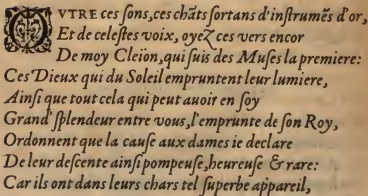 OVTRE ces ſons, ces chãts ſortans d'inſtrumẽs d'or,
Et de celeſtes voix, oyeZ ces vers encor
De moy Cleïon, qui ſuis des Muſes la premiere:
Ces Dieux qui du Soleil empruntent leur lumiere,
Ainſi que tout cela qui peut auoir en ſoy
Grand' ſplendeur entre vous, l'emprunte de ſon Roy,
Ordonnent que la cauſe aux dames ie declare
De leur deſcente ainſi pompeuſe, heureuſe & rare:
Car ils ont dans leurs chars tel ſuperbe appareil,